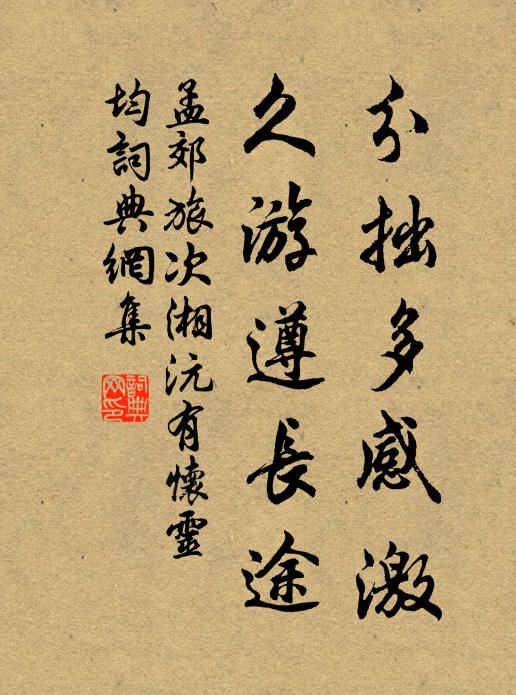 分拙多感激
久游遵長途
孟郊旅次湘沅有懷靈
均詞典網集
詞典
网印